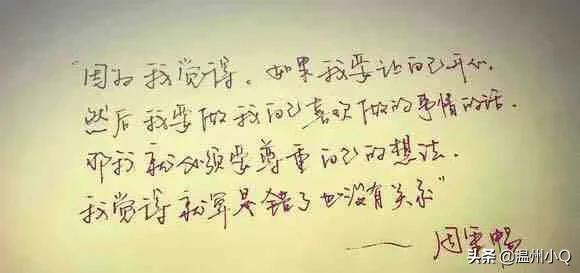 “因为我觉得，如果我要让自己开心.
然后我要做我自己喜欢做的事情的话.
那我就必须要尊重自己的想法.
我觉得就算是错了也没有关系”
——周笔畅
头条 @温州小Q